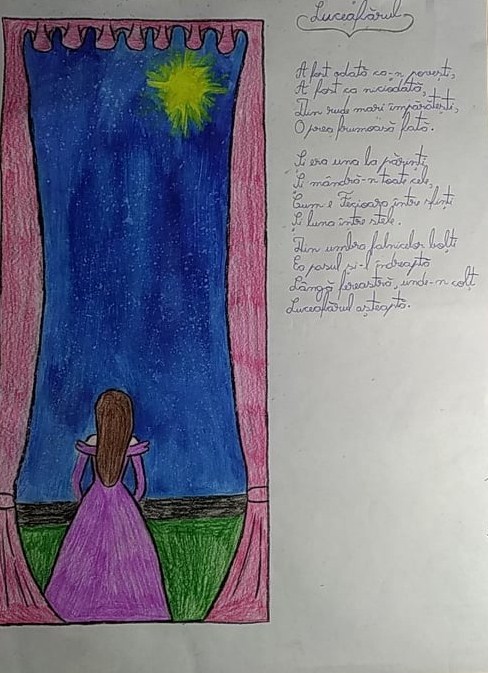 Luceafărul
A fost odată ca-n povești,
A fost ca niciodată,
Din rude mari împărătești,
O prea frumoasă fată.
Și era una la părinți
Și mândră-n toate cele,
Cum e Fecioara între sfinți
Și luna între stele.
Din umbra falnicelor bolți
Ea pasul și-l îndreaptă
Lângă fereastră, unde-n colț
Luceafărul așteaptă.